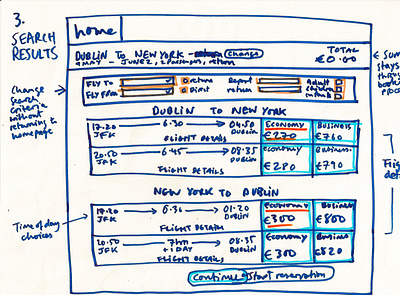 3.
SEARCH
RESULTS
home
DUBLIN TO NEW YORK change
9 MAY - JUNE 2, 2 Passengers, return
TOTAL
€0.00
FLY TO return Depart Adult
FLY FROM return children
Change
Search
Criteria
without
returning to
homepage
DUBLIN TO NEW YORK
17.20 6.30 04.50 ECONOMY BUSINESS
JFK DUBLIN €270 €760
FLIGHT DETAILS
20.50 6.45 08.35 economy Business
JFK DUBLIN €280 €790
FLIGHT DETAILS
NEW YORK TO DUBLIN
Time of day
choices
17.20 6.30 01.20 Economy Business
JFK DUBLIN €300 €800
FLIGHT DETAILS
20.50 7hrs 08.35 Economy Business
JFK +1 DAY DUBLIN €300 €820
FLIGHT DETAILS
continue Start reservation